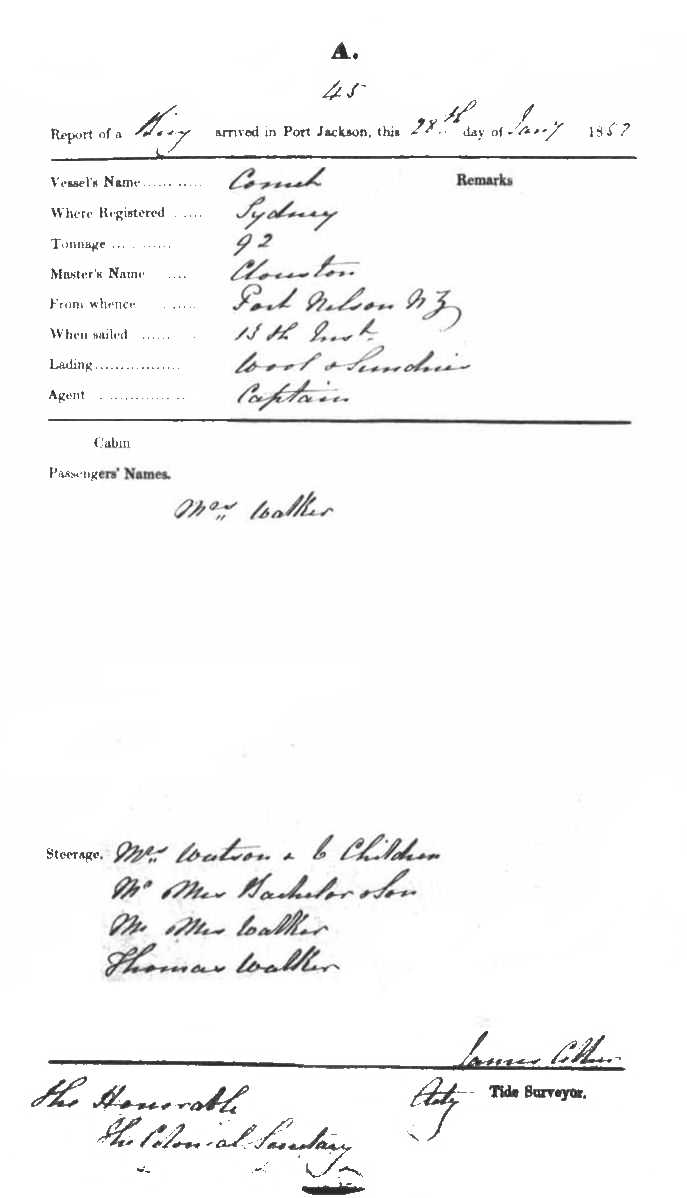 A.
45
Report of a Brig arrived in Port Jackson, this 28th day of Jany 1857
Vessel's Name Comet Remarks
Where Registered Sydney
Tonnage 92
Master's Name Clouston
From whence Port Nelson NZ
When sailed 15th Inst.
Lading Wool & Sundries
Agent Captain
Cabin
Passengers' Names.
Mrs Walker
Steerage. Mrs Watson & 6 Children
Mr & Mrs Bachelor & Son
Mr & Mrs Walker
Thomas Walker
James
Actg Tide Surveyor.
The Honorable
The Colonial Secretary